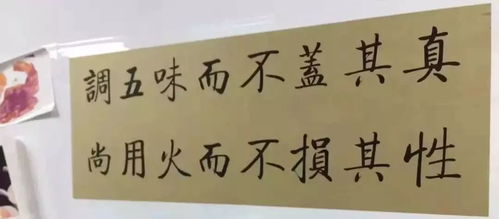 調五味而不蓋其真
尚用火而不損其性